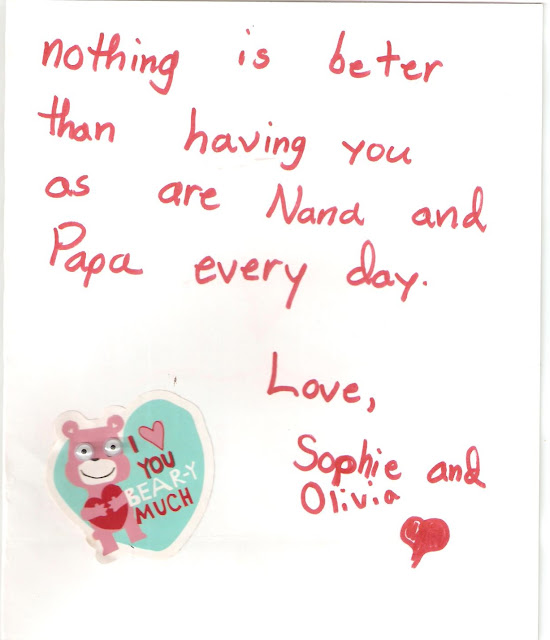 nothing is beter
than having you
as are Nana and
Papa every day.
Love,
Sophie and
Olivia
I
YOU
BEAR-Y
MUCH